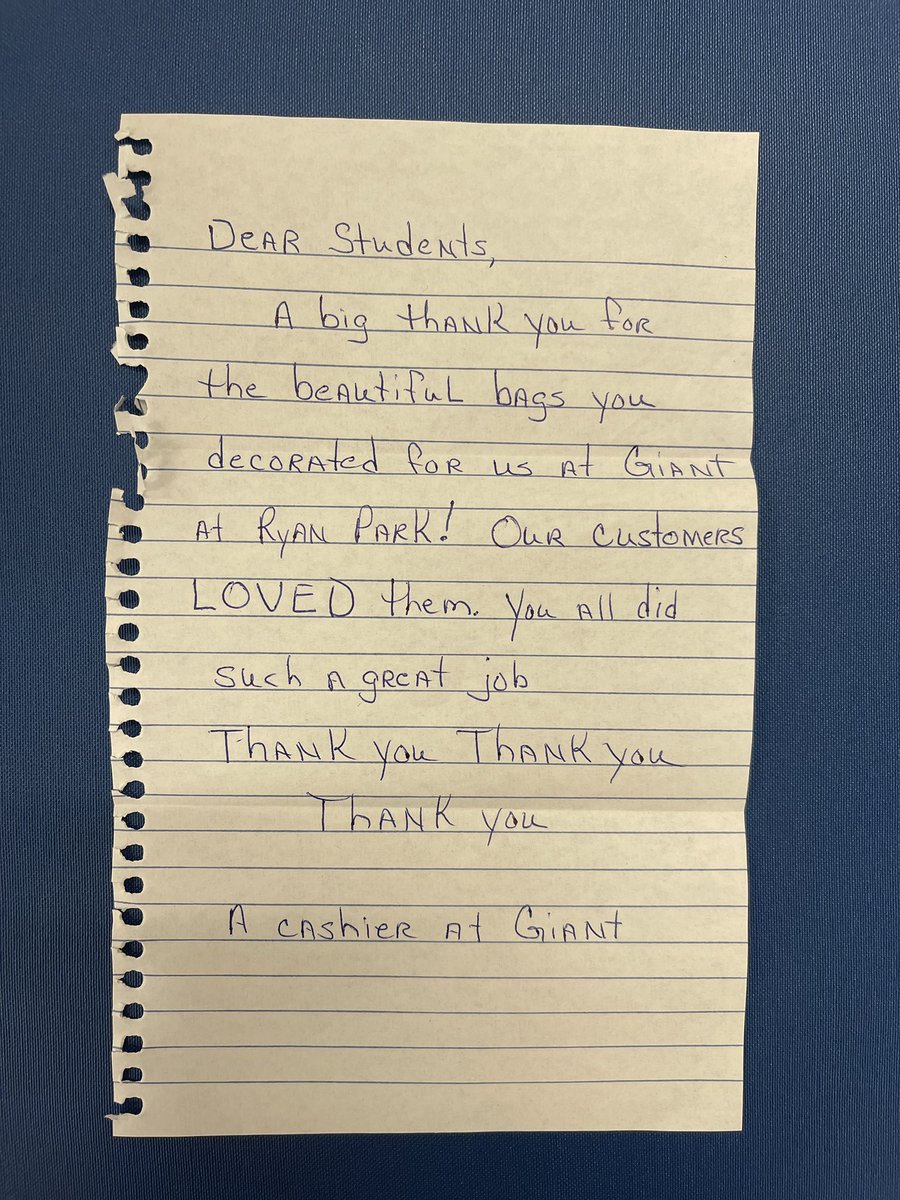 Dear Students,
A big thank you for
the beautiful bags you
decorated for us at Giant
at Ryan Park! Our customers
LOVED them. You all did
such a great job
Thank you Thank you
Thank you
A cashier at Giant